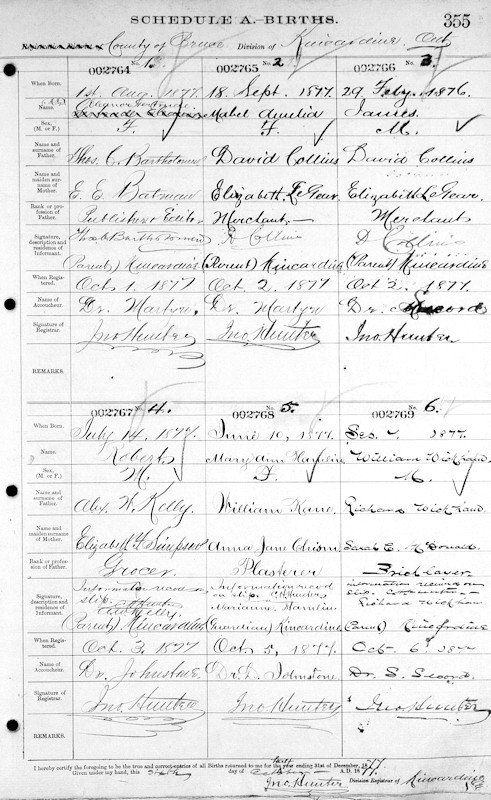 SCHEDULE A.—BIRTHS. 355
County of Bruce Division of Kincardine Ont
002764 No. 1. 002765 No. 2. 002766 No. 3.
When Born. 1st Aug. 1877. 18 Sept. 1877. 29 Feby. 1876.
Name. Mabel Amelia James.
Sex, (M. or F.) F. F. M.
Name and surname of Father. Thos. C. Bartholomew David Collins David Collins
Name and maiden surname of Mother. E. E. Batman Elizabeth LeGear. Elizabeth LeGear.
Rank or profession of Father. Publisher & Editor Merchant.— Merchant
Signature, description and residence of Informant. Bartholomew D Collins D Collins
(Parent) Kincardine (Parent) Kincardine (Parent) Kincardine
When Registered. Oct 1. 1877 Oct 2. 1877 Oct 2. 1877.
Name of Accoucheur. Dr. Martyn. Dr. Martyn Dr. Secord
Signature of Registrar. Jno Hunter Jno Hunter Jno. Hunter
REMARKS.
002767 No. 4. 002768 No. 5. 002769 No. 6.
When Born. July 14. 1877. June 10, 1877. 1877.
Name. Robert Mary Ann Hamelin William Wickham
Sex, (M. or F.) M. F. M.
Name and surname of Father. Alex. W. Kelly William Kane. Richard Wickham
Name and maiden surname of Mother. Elizabeth F Simpson Anna Jane Sarah E. McDonald.
Rank or profession of Father. Grocer. Plasterer Bricklayer
Signature, description and residence of Informant. Information recd on slip. Information recd on slip. information received on slip.
Marianne Hamelin Richard Wickham
(Parent) Kincardine (Guardian) Kincardine (Parent) Kincardine
When Registered. Oct. 3, 1877 Oct 5, 1877. Oct 6. 1877
Name of Accoucheur. Dr Johnstone Dr D. Johnstone Dr. S. Secord
Signature of Registrar. Jno Hunter Jno Hunter Jno Hunter
REMARKS.
I hereby certify the foregoing to be the true and correct entries of all Births returned to me for the year ending 31st of December, 1877
Given under my hand, this day of A.D. 1877.
Jno. Hunter Division Registrar of Kincardine